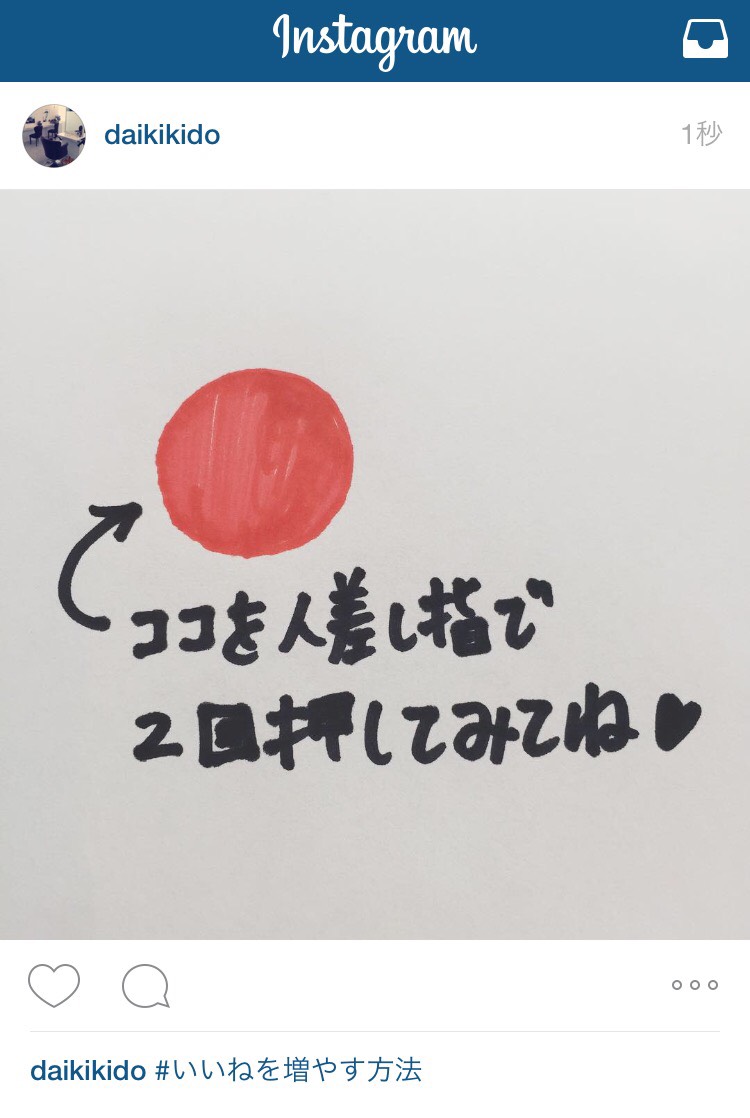 Instagram
daikikido
1秒
ココを人差し指で
2回押してみてね♥
daikikido #いいねを増やす方法